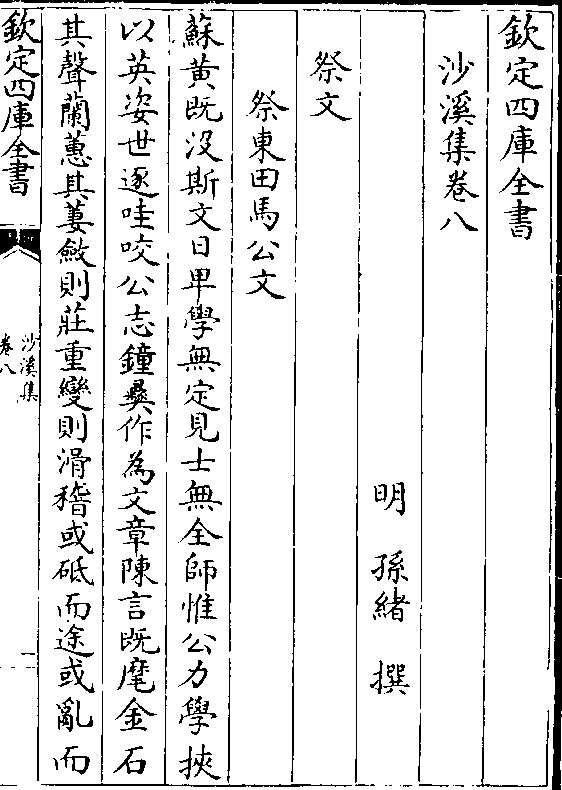 欽定四庫全書
沙溪集卷八
明 孫緒 撰
祭文
祭東田馬公文
蘇黄既没斯文日畀學無定見士無全師惟公力學挾
以英姿世逐哇咬公志鐘彝作為文章陳言既麾金石
其聲蘭蕙其萋斂則莊重變則滑稽或砥而途或亂而
欽定四庫全書
沙溪集
卷八
一